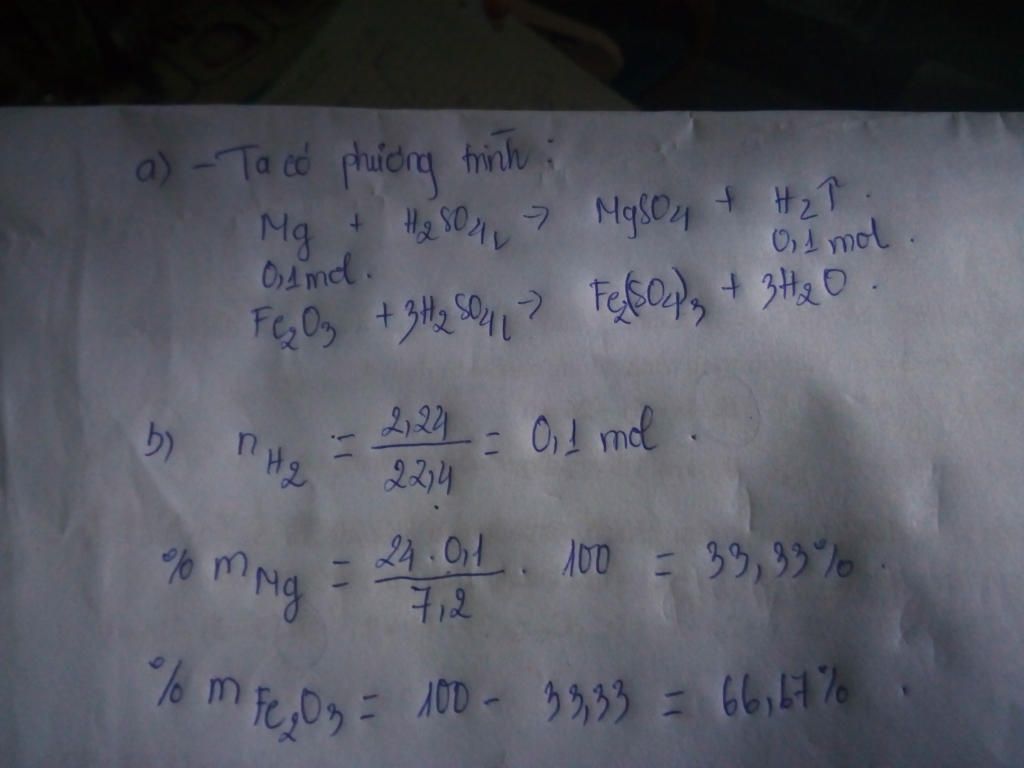 a) - Ta có phương trình :
Mg + H2SO4 L → MgSO4 + H2↑ .
0,1 mol . 0,1 mol .
Fe2O3 + 3H2SO4 L → Fe2(SO4)3 + 3H2O .
b) nH2 = 2,24 / 22,4 = 0,1 mol .
% mMg = 24 . 0,1 / 7,2 . 100 = 33,33% .
% mFe2O3 = 100 - 33,33 = 66,67% .